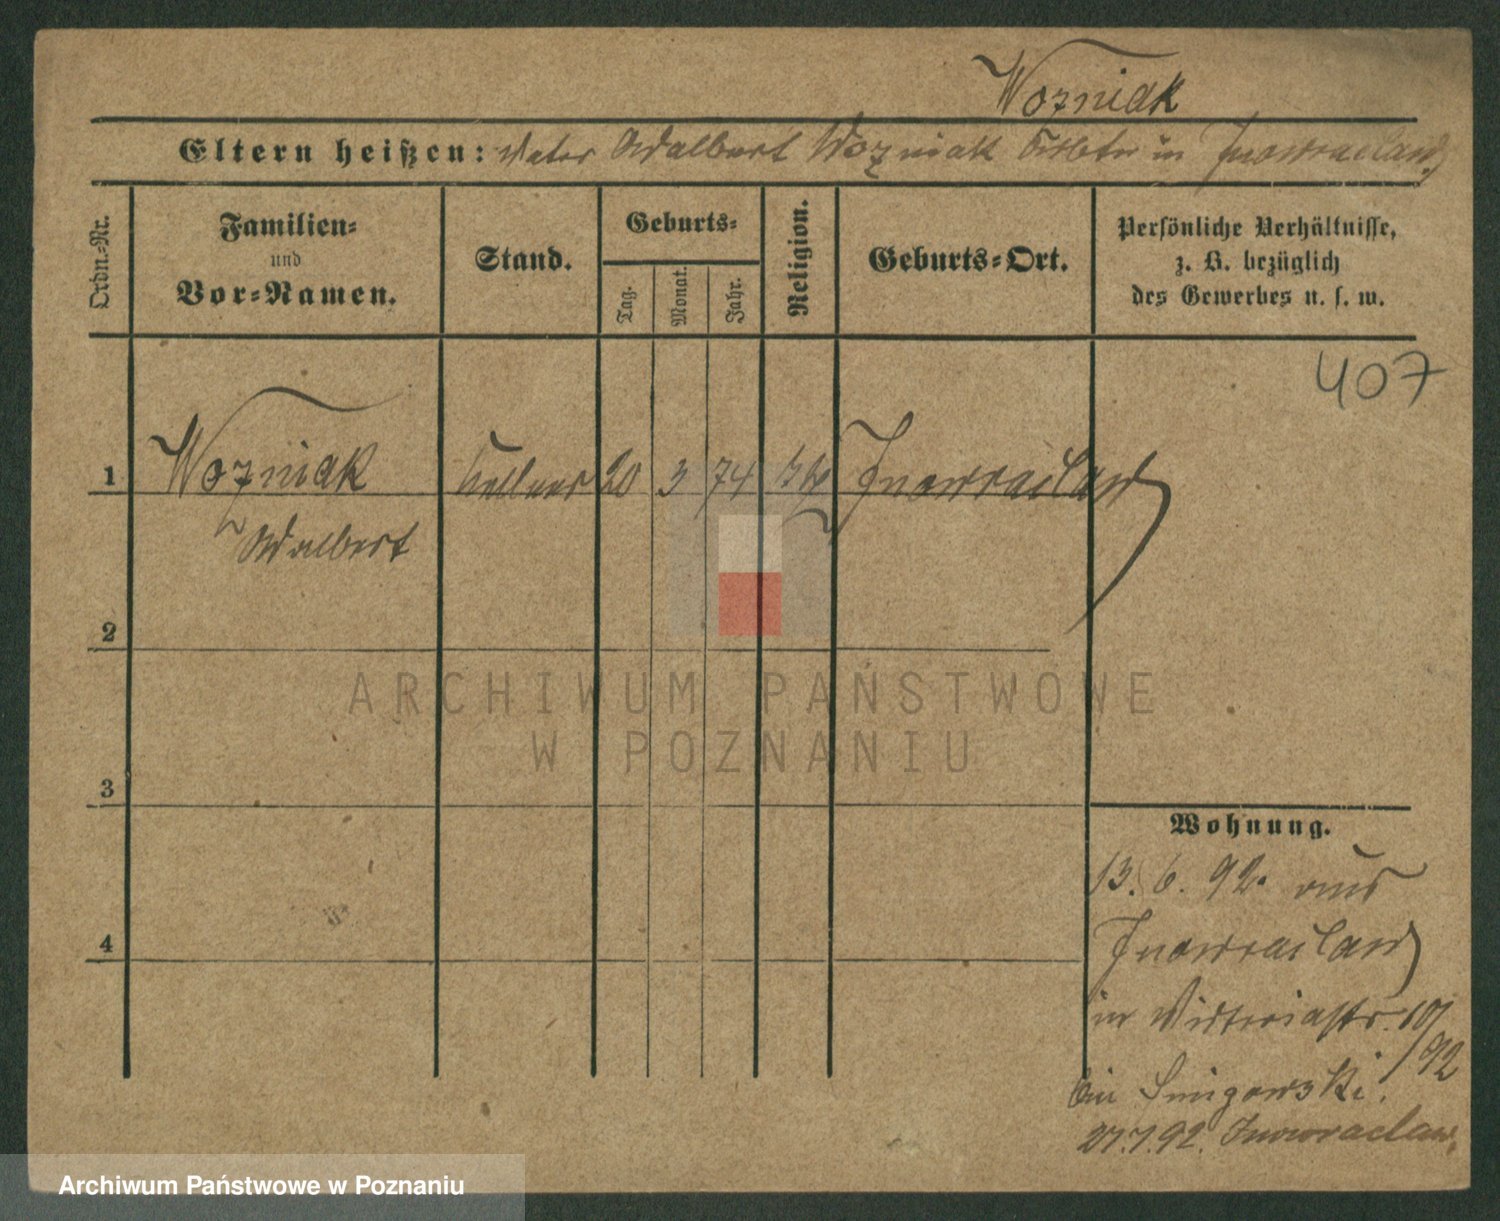 Wozniak
Eltern heißen: Vater Adalbert Wozniak in Inowraclaw
Ordn.-Nr.
Familien-
und
Vor-Namen.
Stand.
Geburts-
Tag.
Monat.
Jahr.
Religion.
Geburts-Ort.
Persönliche Verhältnisse,
z. B. bezüglich
des Gewerbes u. s. w.
407
1 Wozniak Kellner 20 3 74 kth Inowraclaw
Adalbert
2
3
4
Wohnung.
13. 6. 92. aus
Inowraclaw
in Victoriastr. 10/
92
bei
27.7.92. Inowraclaw.
ARCHIWUM PAŃSTWOWE
W POZNANIU
Archiwum Państwowe w Poznaniu